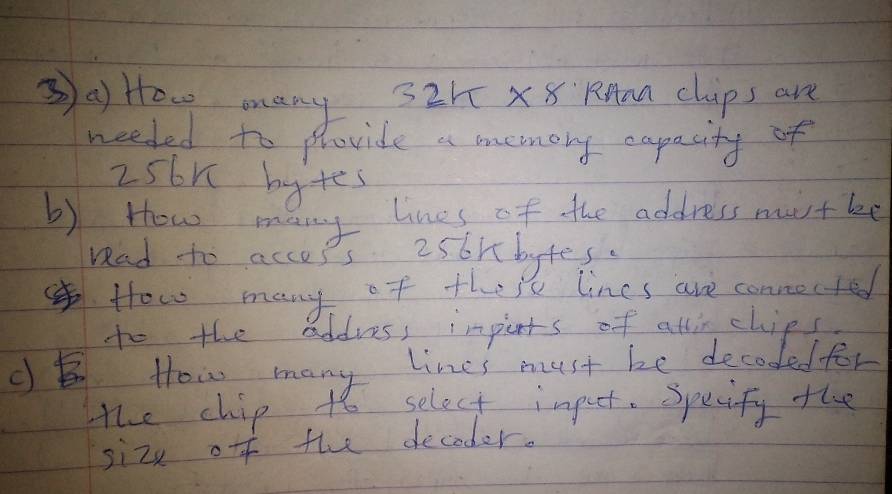 3) a) How many 32K X 8 RAM chips are
needed to provide a memory capacity of
256K bytes
b) How many lines of the address must be
read to access 256K bytes.
How many of these lines are connected
to the address inputs of all chips.
c) How many lines must be decoded for
the chip to select input. Specify the
size of the decoder.